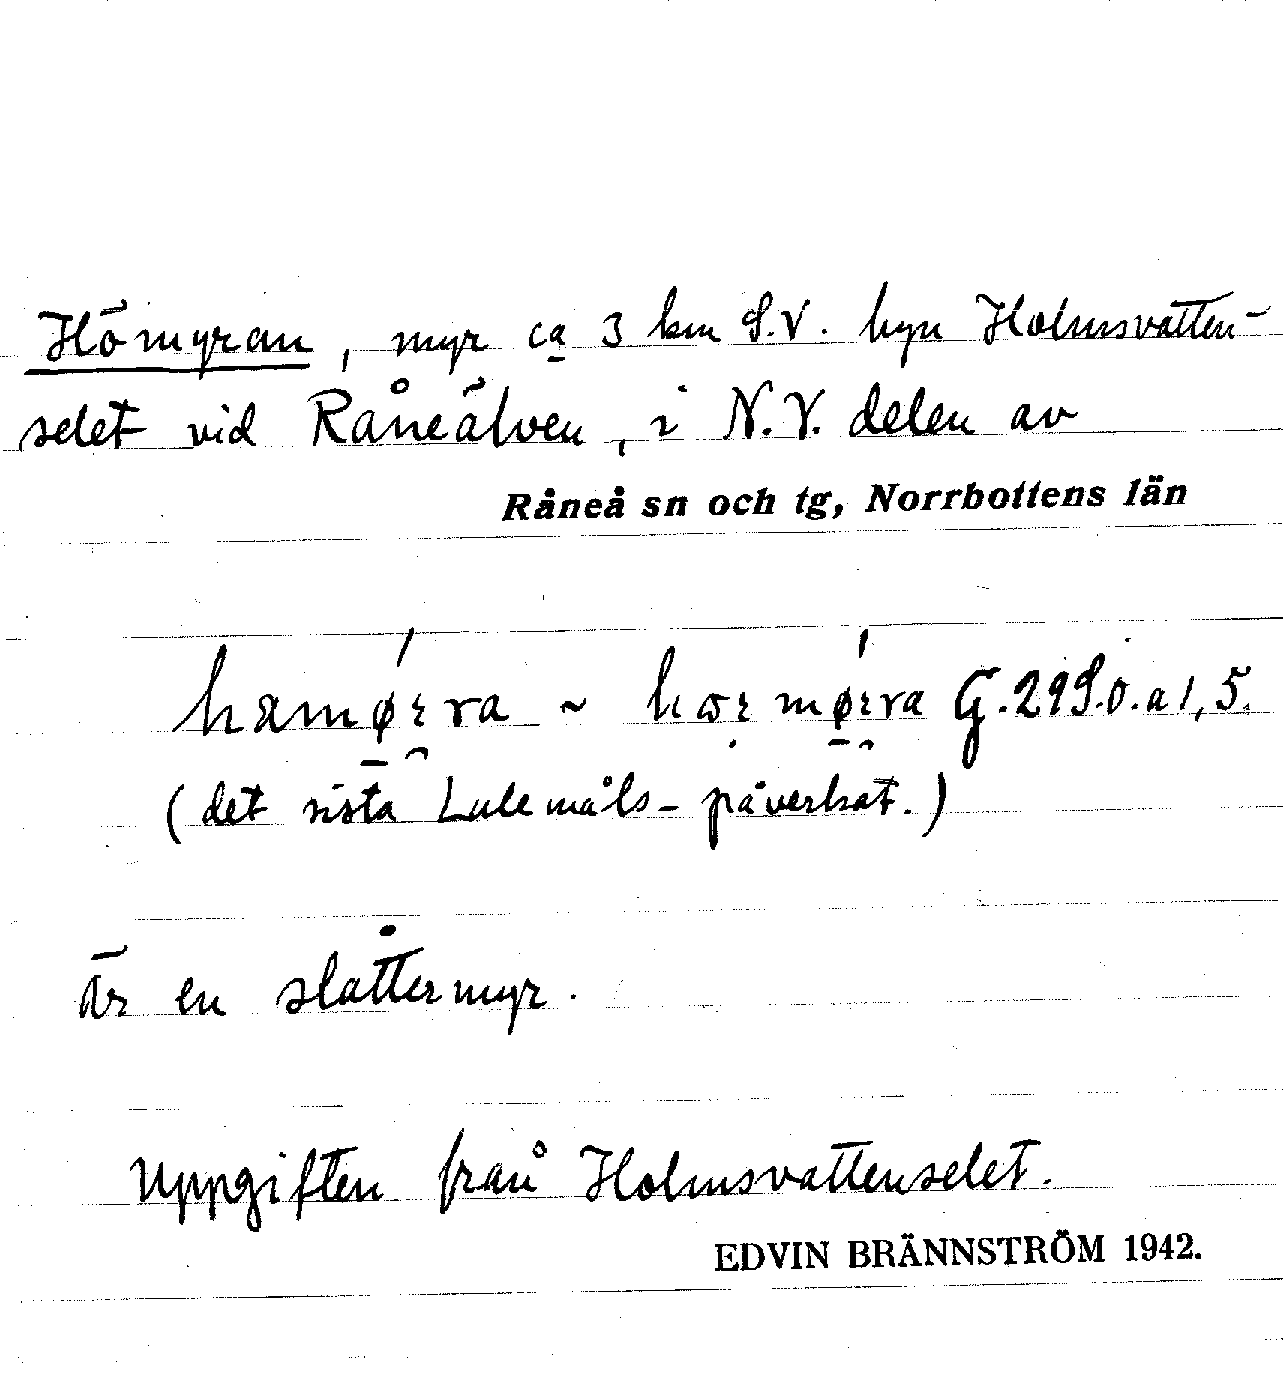 Hömyran, myr ca 3 km S.V. byn Holmsvatten-
selet vid Råneälven, i N.V. delen av
Råneå sn och tg, Norrbottens län
G. 29 S.O. a 1, 5.
(det sista Lulemåls-påverkat.)
är en slåttermyr.
Uppgiften från Holmsvattenselet.
EDVIN BRÄNNSTRÖM 1942.